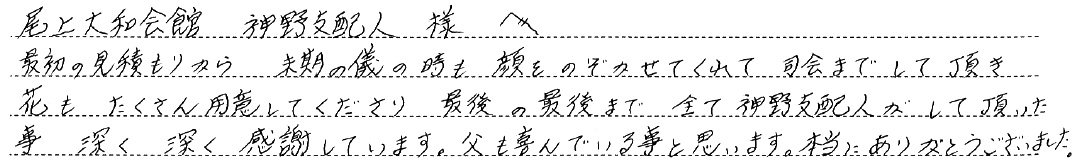 尾上大和会館 神野支配人 様 へ
最初の見積もりから 末期の儀の時も 顔をのぞかせてくれて 司会までして頂き
花も たくさん用意してくださり 最後の最後まで 全て神野支配人がして頂いた
事 深く 深く 感謝しています。父も喜んでいる事と思います。本当にありがとうございました。